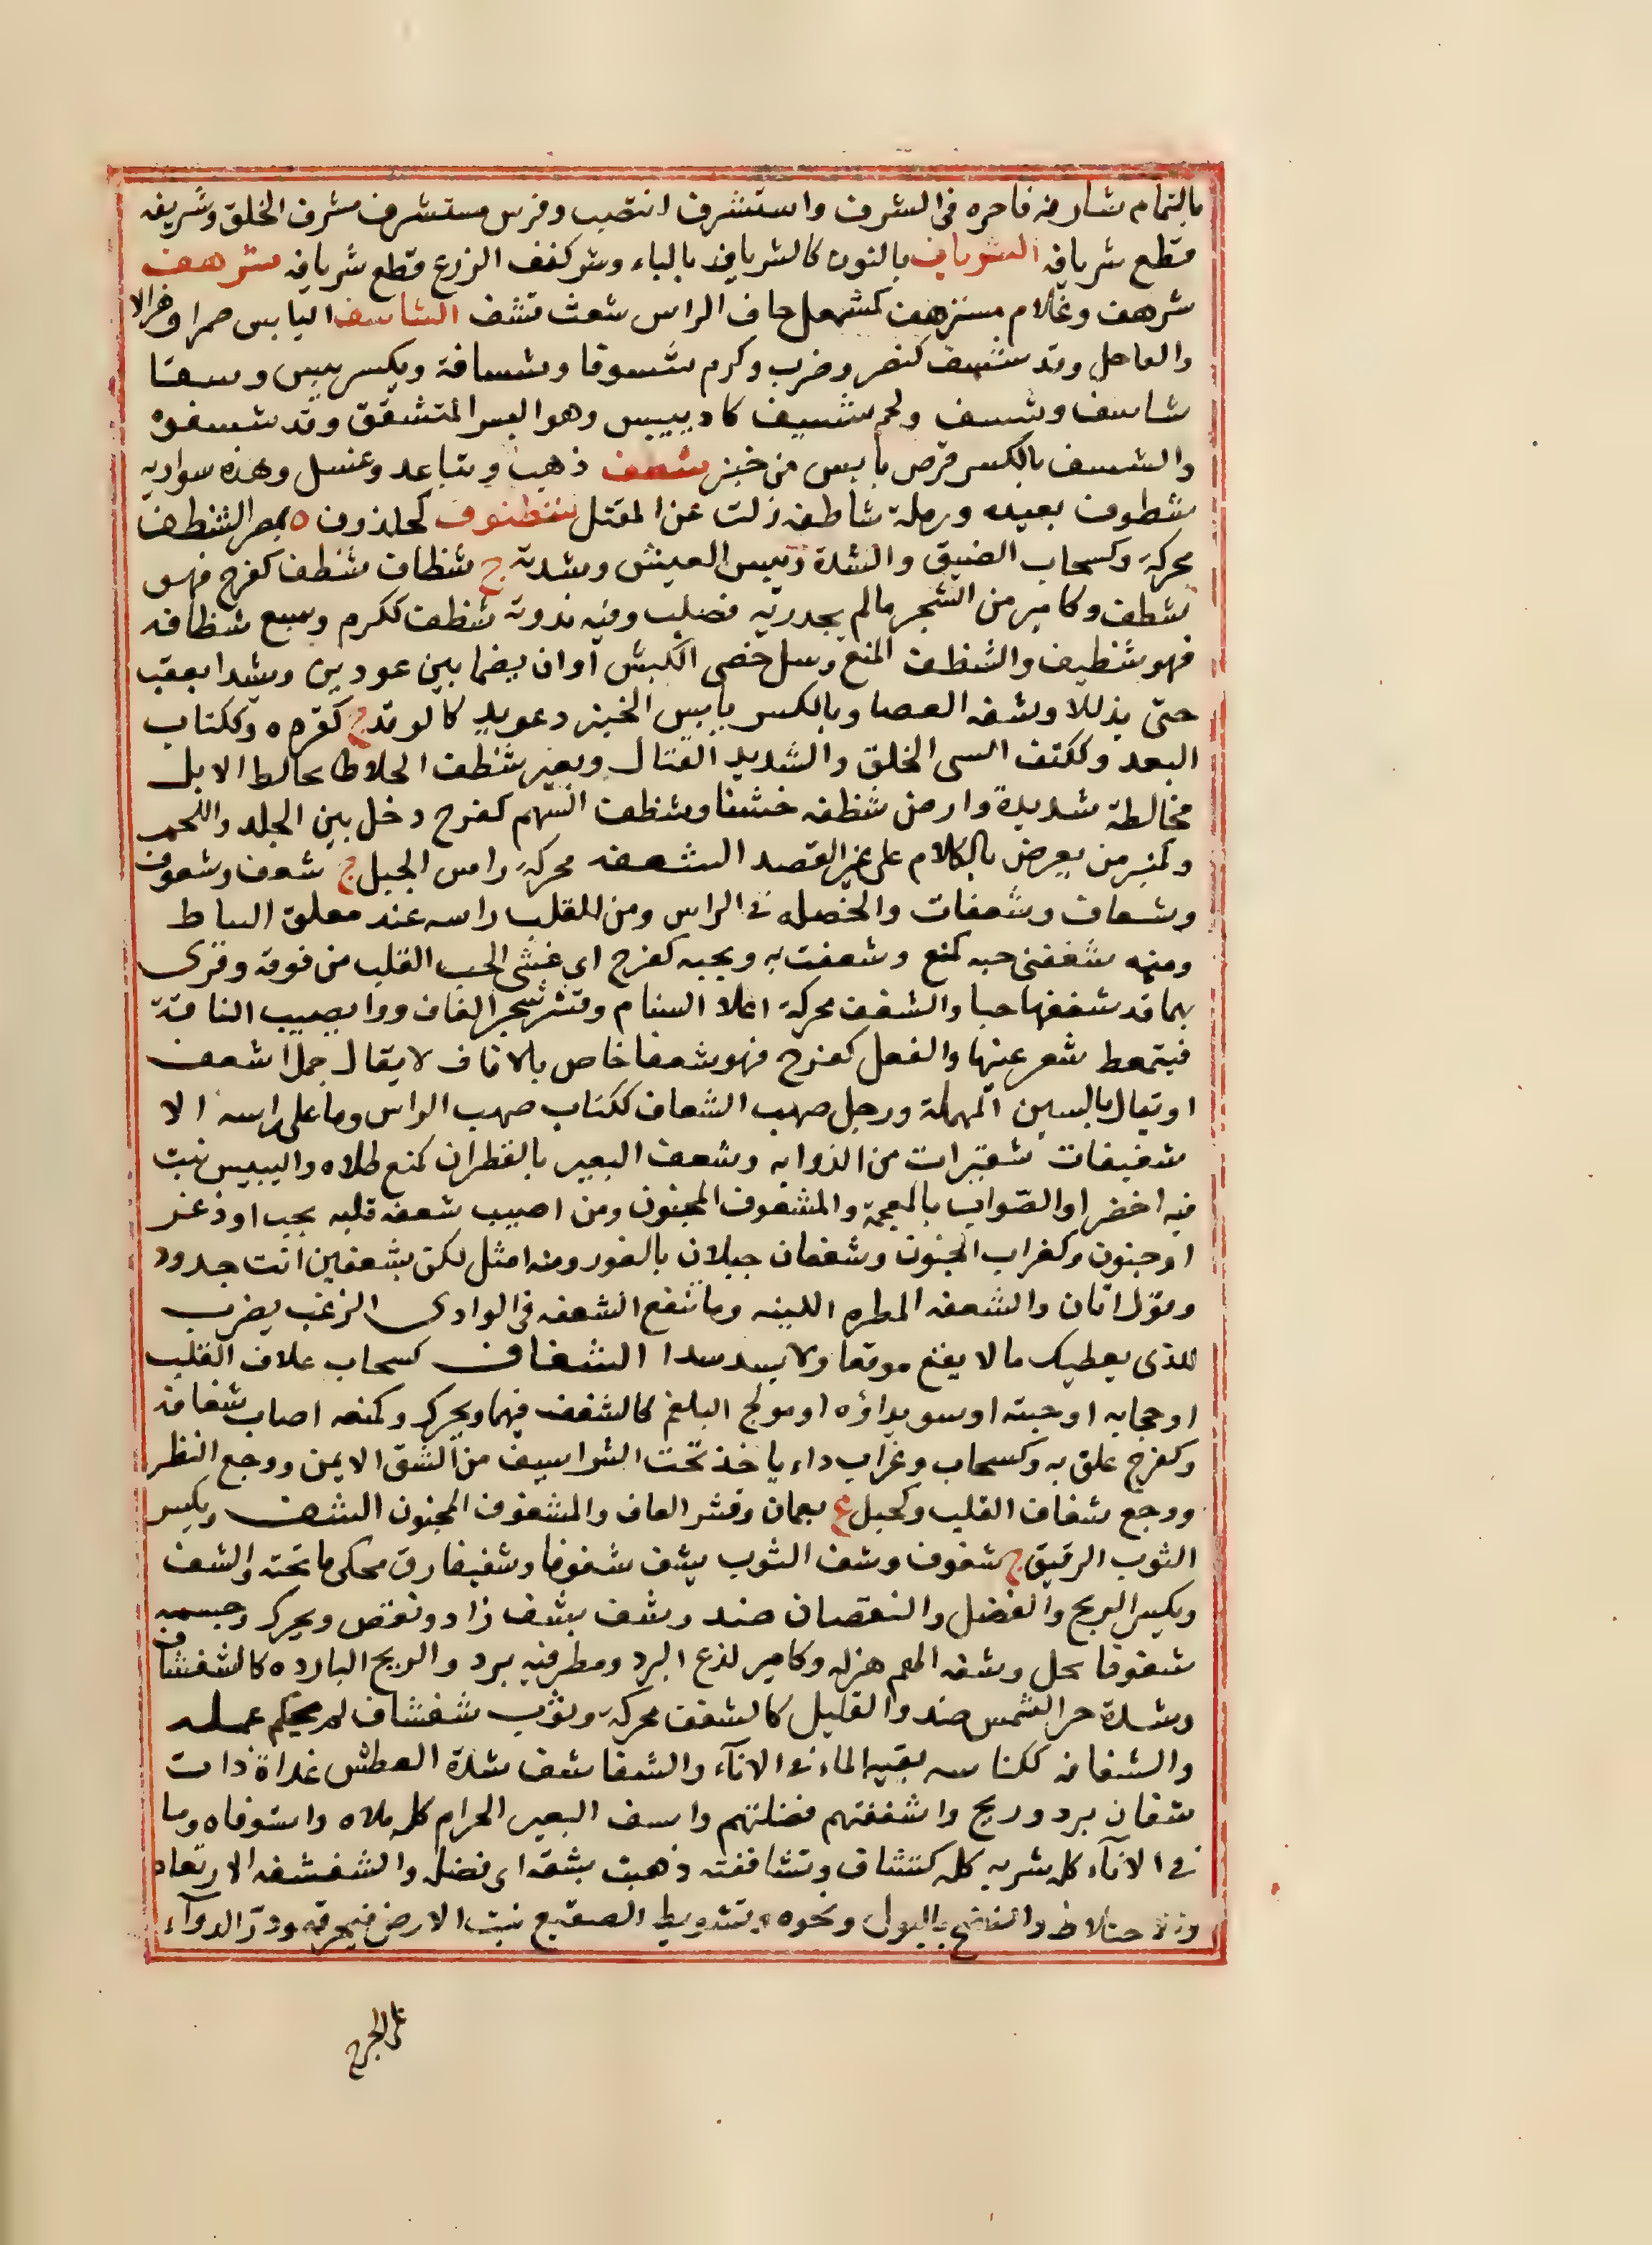 بالتمام شارفه فاخره فى الشرف واستشرف انتصب وفرس مستشرف مشرف الخلق وشريفه
قطع شريافه الشرياف بالنون كالشرياف بالياء وشركفف الزرع قطع شريافه شرهف
شرهف وغلام مشرهف كمشمعل جاف الراس شعث قشف الشاسف اليابس ضمرا وهزالا
والقاحل وقد شسف كنصر وضرب وكرم شسوفا وشسافة ويكسر يبس وسقا
شاسف وشسف ولحم شسيف كاد ييبس وهو البسر المتشقق وقد شسفوه
والشسف بالكسر قرص يابس من خبز شطف ذهب وتباعد وغسل وهذه سواديه
شطوف بعيده ورملة شاطفه زلت عن المقتل شطنوف كحلزون ه بمصر الشظف
محركة وكسحاب الضيق والشدة ويبس العيش وشدته ج شظاف شظف كفرح فهو
شظف وكامير من الشجر مالم يجد ريه فصلب وفيه ندوته شظف ككرم وسمع شظافه
فهو شظيف والشظف المنع وسل خصى الكبش او ان يضما بين عودين ويشدا بعقب
حتى يذبلا وشقه العصا وبالكسر يابس الخبز وعويد كالوتد ج كقرده وككتاب
البعد وككتف السى الخلق والشديد القتال وبعير شظف الخلاط يخالط الابل
مخالطة شديدة وارض شظفه خشنا وشظف السهم كفرح دخل بين الجلد واللحم
وكمنبر من يعرض بالكلام على غير القصد الشعفه محركة راس الجبل ج شعف وشعوف
وشعاف وشعفات والخصله فى الراس ومن القلب راسه عند معلق النياط
ومنه شعفنى حبه كمنع وشعفت به وبحبه كفرح اى غشى الحب القلب من فوقه وقرى
بهما قد شعفها حبا والشعف محركة اعلا السنام وقشر شجر الغاف ودا يصيب الناقة
فيتمعط شعر عينها والفعل كفرح فهو شعفا خاص بالاناث لا يقال جمل اشعف
او يقال بالسين المهملة ورجل صهب الشعاف ككتاب صهب الراس وما على راسه الا
شعيفات شعيرات من الذوابه وشعف البعير بالقطران كمنع طلاه واليبيس نبت
فيه اخضر او الصواب بالمعجمة والمشعوف المجنون ومن اصيب شعفة قلبه بحب او ذعر
او جنون وكغراب الجنون وشعفان جبلان بالغور ومنه المثل لكن بشعفين انت جدود
وتقول اتان والشعفه المطره اللينه وما تنفع الشعفه فى الوادى الرغب يضرب
للذى يعطيك مالا يقع موقعا ولا يسد مسدا الشغاف كسحاب غلاف القلب
او حجابه او حبته او سويداؤه او مولج البلغم كالشغف فيهما ويحرك وكمنعه اصاب شغافه
وكفرح علق به وكسحاب وغراب داء ياخذ تحت الشراسيف من الشق الايمن ووجع النظر
ووجع شغاف القلب وكجبل ع بعمان وقشر الغاف والمشغوف المجنون الشف ويكسر
الثوب الرقيق ج شفوف وشف الثوب يشف شفوفا وشفيفا رق فحكى ما تحته والشف
ويكسر الربح والفضل والنقصان ضد وشف يشف زاد ونقص ويحرك وجسمه
شفوفا نحل وشفه الهم هزله وكامير لذع البرد ومطر فيه برد والريح البارده كالشفشاف
وشدة حر الشمس ضد والقليل كالشفف محركة وثوب شفشاف لم يحكم عمله
والشفافه ككناسه بقية الماء فى الاناء والشفاشف شدة العطش غداة ذات
شفان برد وريح واشففتهم فضلتهم واشف البعير الحزام كله ملاه واستوفاه وما
فى الاناء كله شربه كله كتشاف وتشاففته ذهبت بشفه اى فضله والشفشفه الارتعاد
والاختلاط والنضح بالبول ونحوه وتشويط الصقيع نبت الارض فيحرقه وذر الدواء
على الجرح